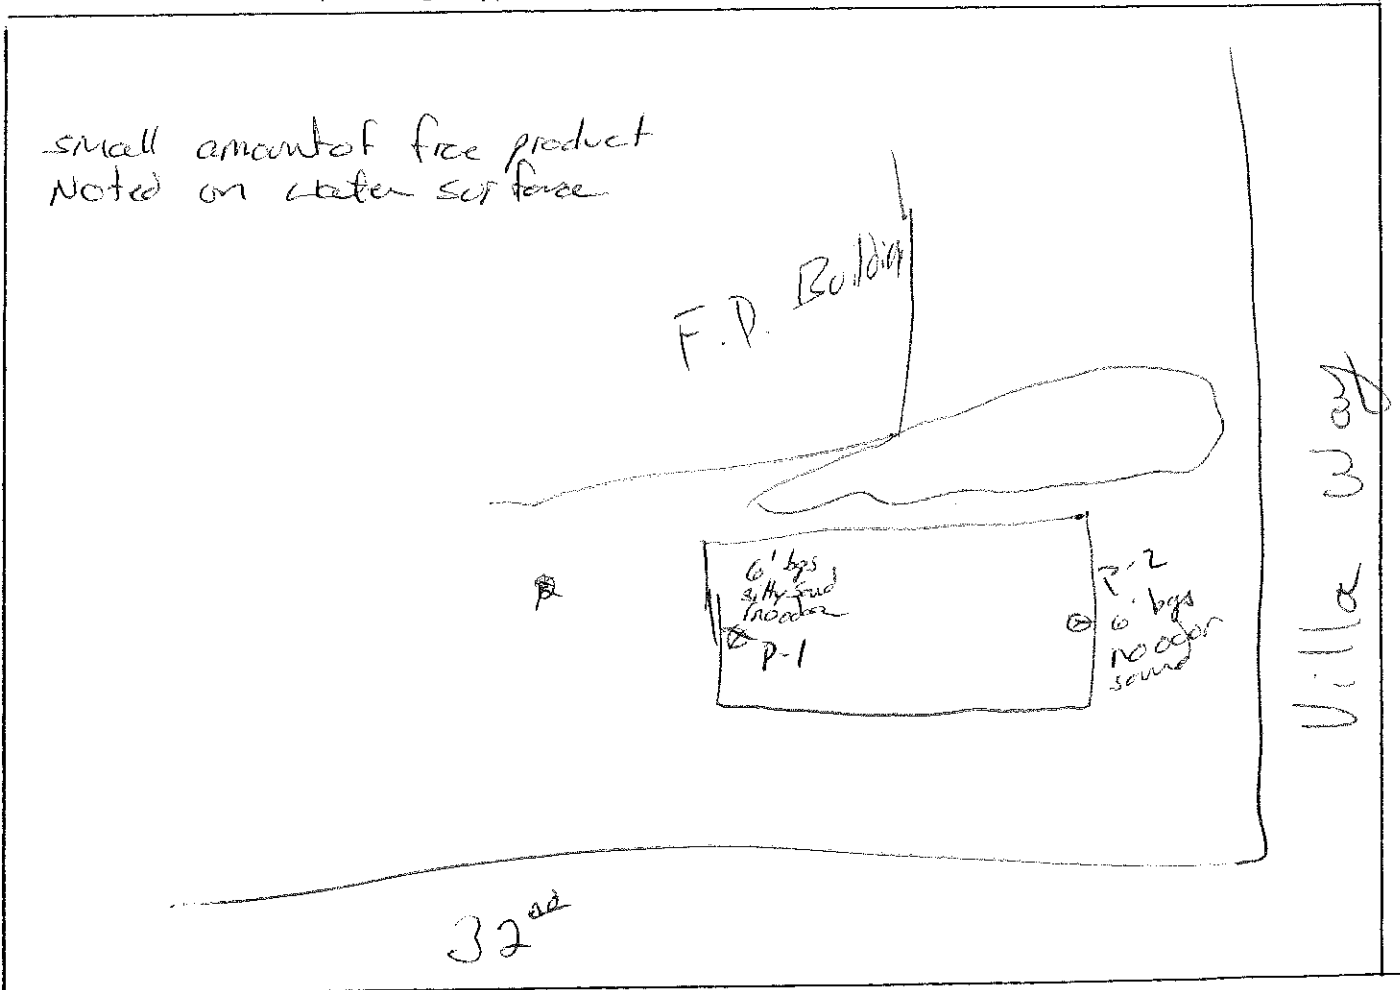 small amount of free product
Noted on water surface
F.D. Building
6' bgs
silty sand
no odor
P-1
P-2
6' bgs
no odor
sand
Villa Way
32nd